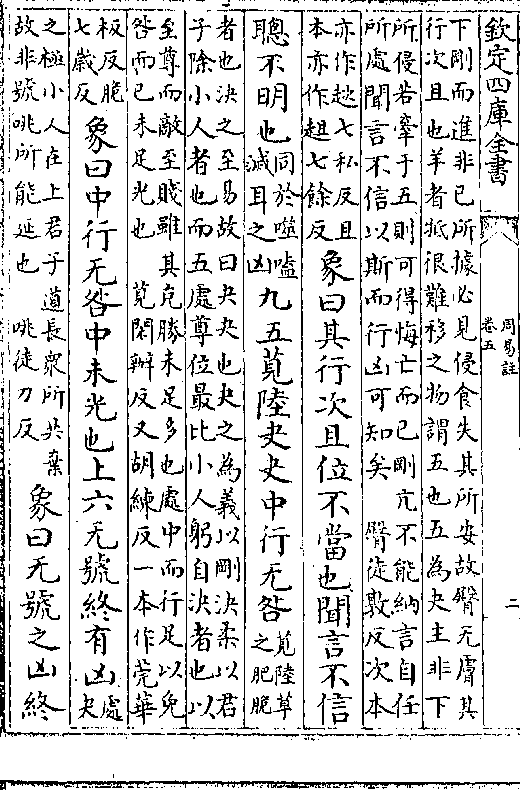 欽定四庫全書
周易註
卷五
二
下剛而進非已所據必見侵食失其所安故臀无膚其
行次且也羊者抵狠難移之物謂五也五為夬主非下
所侵若牽于五則可得悔亡而已剛亢不能納言自任
所處聞言不信以斯而行凶可知矣 臀徒敦反次本
亦作趑七私反且
本亦作趄七餘反
象曰其行次且位不當也聞言不信
聰不明也
同於噬嗑
滅耳之凶
九五莧陸夬夬中行无咎
莧陸草
之肥脆
者也決之至易故曰夬夬也夬之為義以剛決柔以君
子除小人者也而五處尊位最比小人躬自決者也以
至尊而敵至賤雖其克勝未足多也處中而行足以免
咎而已未足光也 莧閑辨反又胡練反一本作莞華
板反脆
七歲反
象曰中行无咎中未光也上六无號終有凶
處
夬
之極小人在上君子道長衆所共棄
故非號咷所能延也 咷徒刀反
象曰无號之凶終